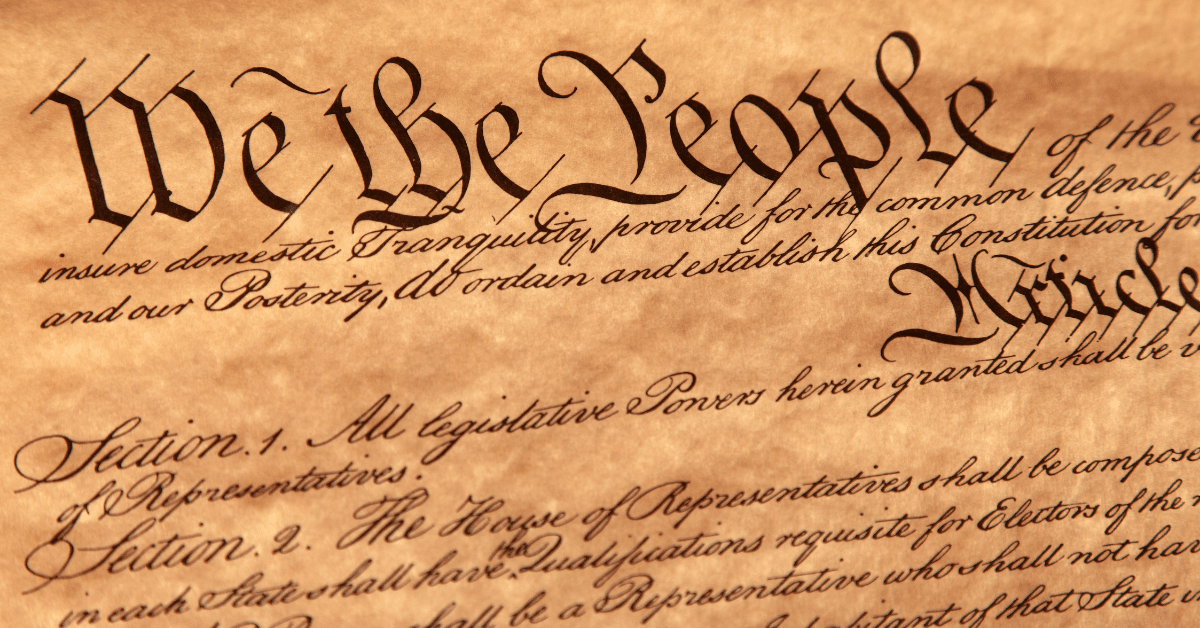 We the People of the
insure domestic Tranquility, provide for the common defence,
and our Posterity, do ordain and establish this Constitution for
Article
Section. 1. All legislative Powers herein granted shall be
of Representatives.
Section. 2. The House of Representatives shall be compose
the
in each State shall have Qualifications requisite for Electors of the
shall be a Representative who shall not hav
of that State in